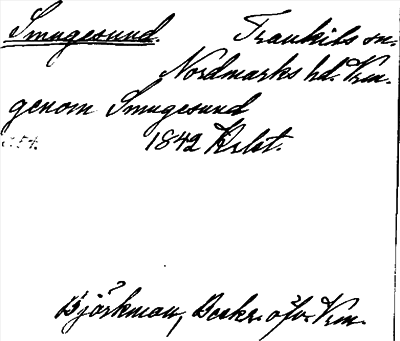 Smugesund. Trankils sn.
Nordmarks hd. Vrm.
genom Smugesund
s. 54. 1842 Krlst.
Björkman, Beskr. öfv. Vrm.